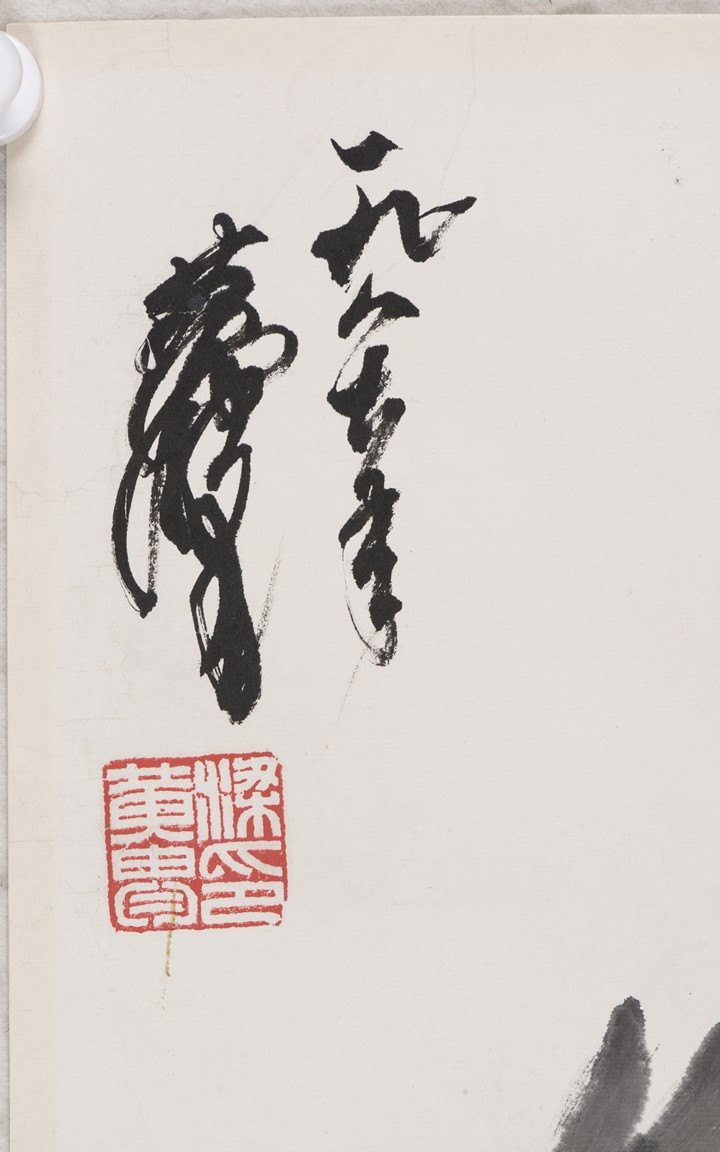 一九八六年
黄胄
梁印
黄胄